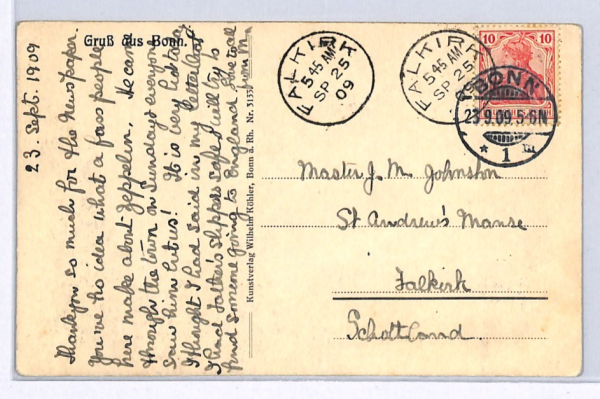 Gruß aus Bonn.
23. Sept. 1909
Thank you so much for the newspaper.
You've no idea what a fuss people
here make about Zeppelin. He came
through the town on Sunday & everyone
saw him but us! It is very hot today
I thought I had said in my letter that
I had father's slippers safe, will try to
find someone going to England Love to all
from M
Kunstverlag Wilhelm Köhler, Bonn a. Rh. Nr. 3135
FALKIRK
5.45 AM
SP 25
09
FALKIRK
5.45 AM
SP 25
09
10 10
BONN
23.9.09.5-6N
* 1
Master J. M. Johnston
St Andrew's Manse
Falkirk
Schottland.